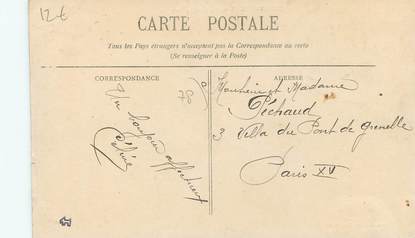 12€
CARTE POSTALE
Tous les Pays étrangers n'acceptent pas la Correspondance au recto
(Se renseigner à la Poste)
CORRESPONDANCE
ADRESSE
78
Un bonjour affectueux
Céline
Monsieur et Madame
Péchaud
3 Villa du Pont de Grenelle
Paris XV